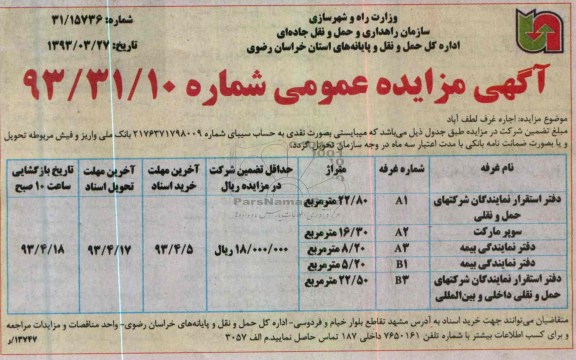 وزارت راه و شهرسازی
سازمان راهداری و حمل و نقل جاده‌ای
اداره کل حمل و نقل و پایانه‌های استان خراسان رضوی
شماره: ۳۱/۱۵۷۳۶
تاریخ: ۱۳۹۳/۰۳/۲۷
آگهی مزایده عمومی شماره ۹۳/۳۱/۱۰
موضوع مزایده: اجاره غرف لطف آباد
مبلغ تضمین شرکت در مزایده طبق جدول ذیل می‌باشد که میبایستی بصورت نقدی به حساب سیبای شماره ۲۱۷۶۳۷۱۷۹۸۰۰۹ بانک ملی واریز و فیش مربوطه تحویل
و یا بصورت ضمانت نامه بانکی با مدت اعتبار سه ماه در وجه سازمان تحویل گردد.
نام غرفه | شماره غرفه | متراژ | حداقل تضمین شرکت در مزایده ریال | آخرین مهلت خرید اسناد | آخرین مهلت تحویل اسناد | تاریخ بازگشایی ساعت ۱۰ صبح
دفتر استقرار نمایندگان شرکتهای حمل و نقلی | A۱ | ۲۲/۸۰مترمربع
سوپر مارکت | A۲ | ۱۶/۳۰مترمربع
دفتر نمایندگی بیمه | A۳ | ۸/۲۰مترمربع | ۱۸/۰۰۰/۰۰۰ ریال | ۹۳/۴/۵ | ۹۳/۴/۱۷ | ۹۳/۴/۱۸
دفتر نمایندگی بیمه | B۱ | ۵/۲۰مترمربع
دفتر استقرار نمایندگان شرکتهای حمل و نقلی داخلی و بین‌المللی | B۳ | ۲۲/۵۰مترمربع
متقاضیان می‌توانند جهت خرید اسناد به آدرس مشهد تقاطع بلوار خیام و فردوسی- اداره کل حمل و نقل و پایانه‌های خراسان رضوی- واحد مناقصات و مزایدات مراجعه
و برای کسب اطلاعات بیشتر با شماره تلفن ۷۶۵۰۱۶۱ داخلی ۱۸۷ تماس حاصل نمایید.م الف ۳۰۵۷
۱۳۷۴۷/ر
ParsNamad